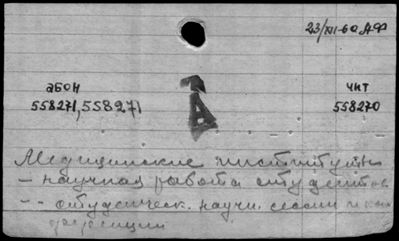 23/XII-60 АФ
абон
558271, 558271
чит
558270
Медицинские институты
- научная работа студентов
- - студенческ. научн. сессии и кон
ференции